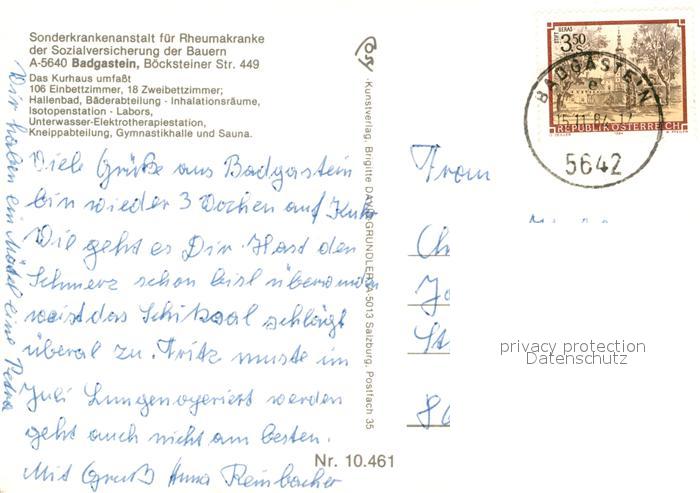 Sonderkrankenanstalt für Rheumakranke
der Sozialversicherung der Bauern
A-5640 Badgastein, Böcksteiner Str. 449
Das Kurhaus umfaßt
106 Einbettzimmer, 18 Zweibettzimmer;
Hallenbad, Bäderabteilung · Inhalationsräume,
Isotopenstation · Labors,
Unterwasser-Elektrotherapiestation,
Kneippabteilung, Gymnastikhalle und Sauna.
Viele Grüße aus Badgastein
bin wieder 3 Wochen auf Kuhr
Wie geht es Dir. Hast den
Schmerz schon leist überwunden
weist das Schiksaal schlägt
überal zu. Fritz muste im
Juli Lungenoperiert werden
geht auch nicht am besten.
Mit Gruß Anna Reinbacher
Wir haben ein Mädel eine Petra
Kunstverlag, Brigitte DAVID-GRUNDLER, A-5013 Salzburg, Postfach 35
Nr. 10.461
STIFT GERAS
3.50
S
REPUBLIK ÖSTERREICH
BADGASTEIN
15.11.84-17
5642
Frau
Ch
Jo
St
86
privacy protection
Datenschutz